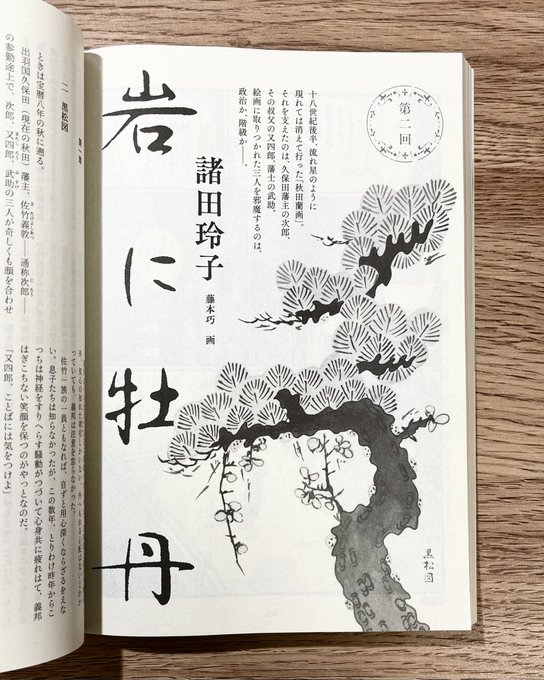 第二回
十八世紀後半、流れ星のように
現れては消えて行った「秋田蘭画」。
それを支えたのは、久保田藩主の次郎、
その叔父の又四郎、藩士の武助。
絵画に取りつかれた三人を邪魔するのは、
政治か、階級か――。
諸田玲子
藤本巧 画
岩に牡丹
黒松図
二 黒松図
ときは宝暦八年の秋に遡る。
出羽国久保田（現在の秋田）藩主、佐竹義敦――通称次郎――
の参勤途上で、次郎、又四郎、武助の三人が奇しくも顔を合わせ
っていても、義邦は注意を怠らなかった。
佐竹一族の一員ともなれば、自ずと用心深くならざるをえな
い。息子たちは知らなかったが、この数年、とりわけ昨年からこ
っちは神経をすりへらす騒動がつづいて心身共に疲れはて、義邦
はぎこちない笑顔を保つのがやっとなのだ。
「又四郎、ことばには気をつけよ」